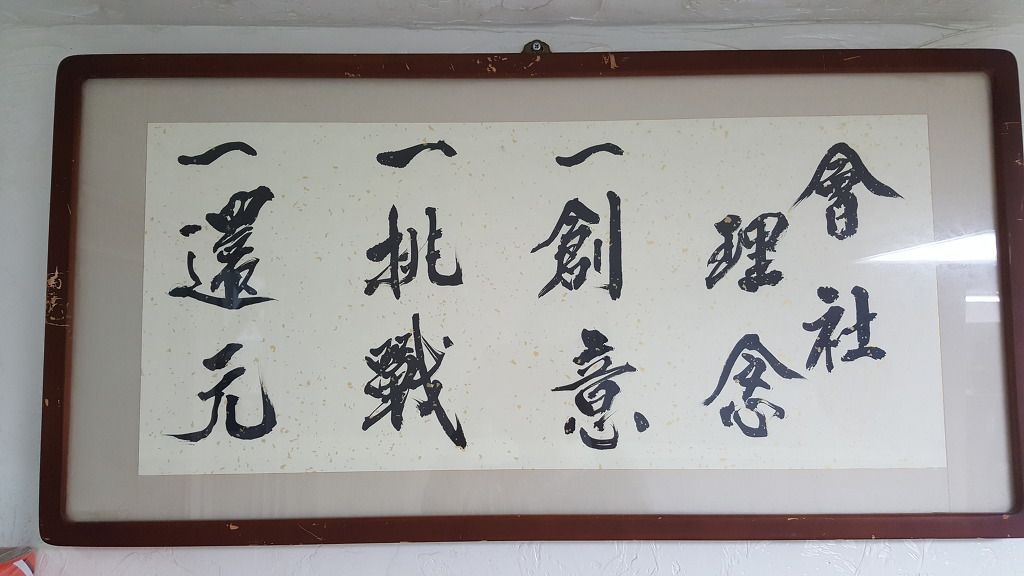 會社
理念
一創意
一挑戰
一還元